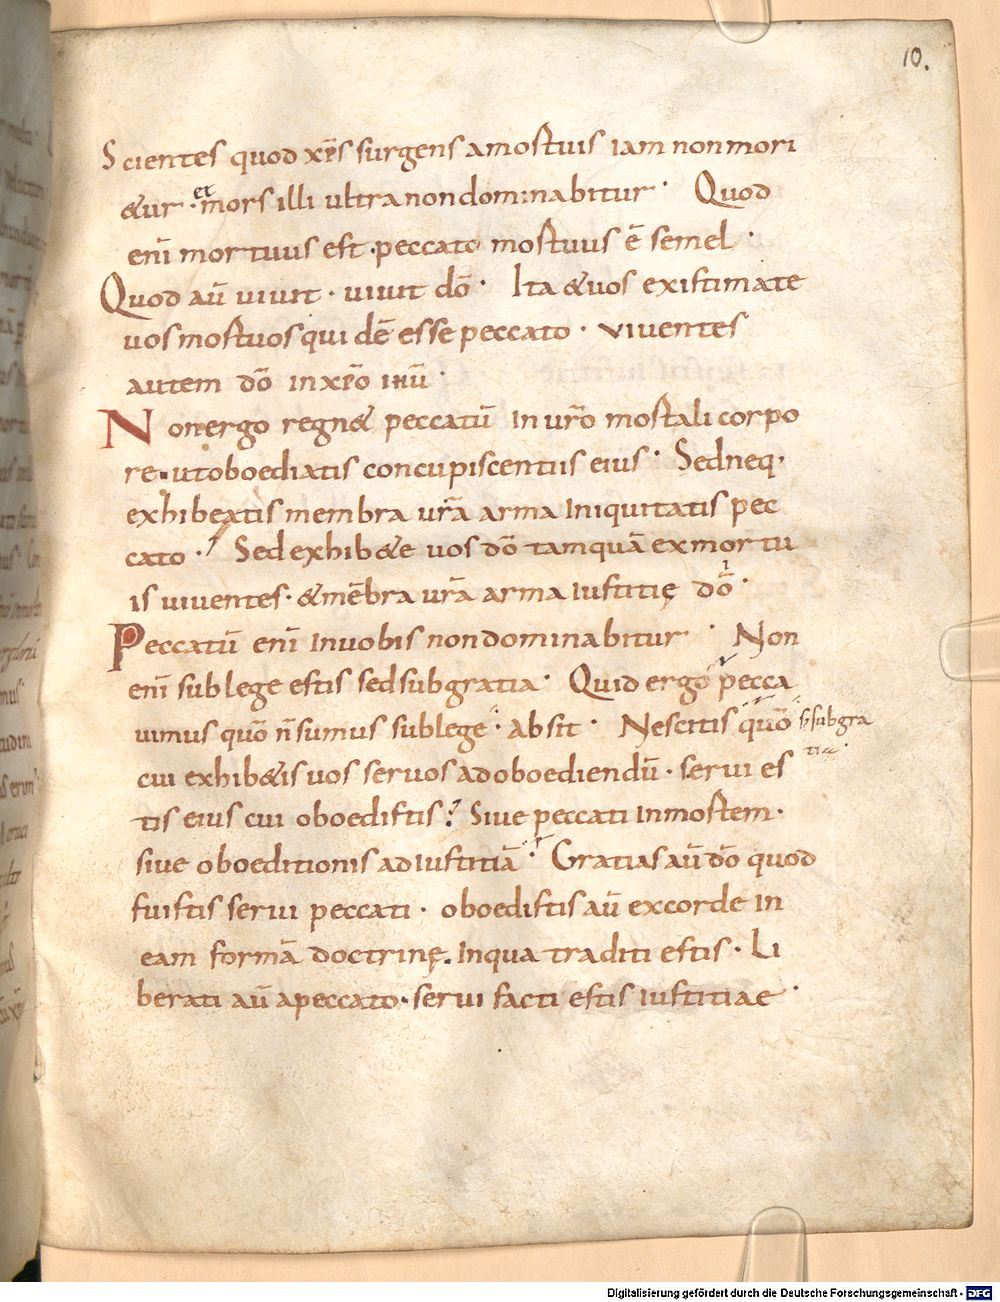 10.
Scientes quod xp̄s surgens amortuis iam non mori
&ur · et mors illi ultra non dominabitur · Quod
eni̅ mortuus est · peccato mortuus ē semel ·
Quod au̅ uiuit · uiuit dō · Ita & uos existimate
uos mortuos quidē esse peccato · viuentes
autem dō in xp̄o ihū ·
Non ergo regn& peccatū in urō mortali corpo
re · ut oboediatis concupiscentiis eius · Sed neq·
exhibeatis membra urā arma iniquitatis pec
cato · Sed exhib&e uos dō tamquā ex mortu
is uiuentes · & mēbra urā arma iustitię dō ·
Peccatū eni̅ in uobis non dominabitur · Non
eni̅ sub lege estis sed sub gratia · Quid ergo pecca
uimus quō n̄ sumus sub lege · absit · Nescitis quō
s; sub gra
tia ·
cui exhib&is uos seruos ad oboediendū · serui es
tis eius cui oboedistis? Siue peccati in mortem ·
siue oboeditionis ad iustitiā · Gratias au̅ dō quod
fuistis serui peccati · oboedistis au̅ ex corde in
eam formā doctrinę. in qua traditi estis · Li
berati au̅ a peccato · serui facti estis iustitiae ·
Digitalisierung gefördert durch die Deutsche Forschungsgemeinschaft - DFG